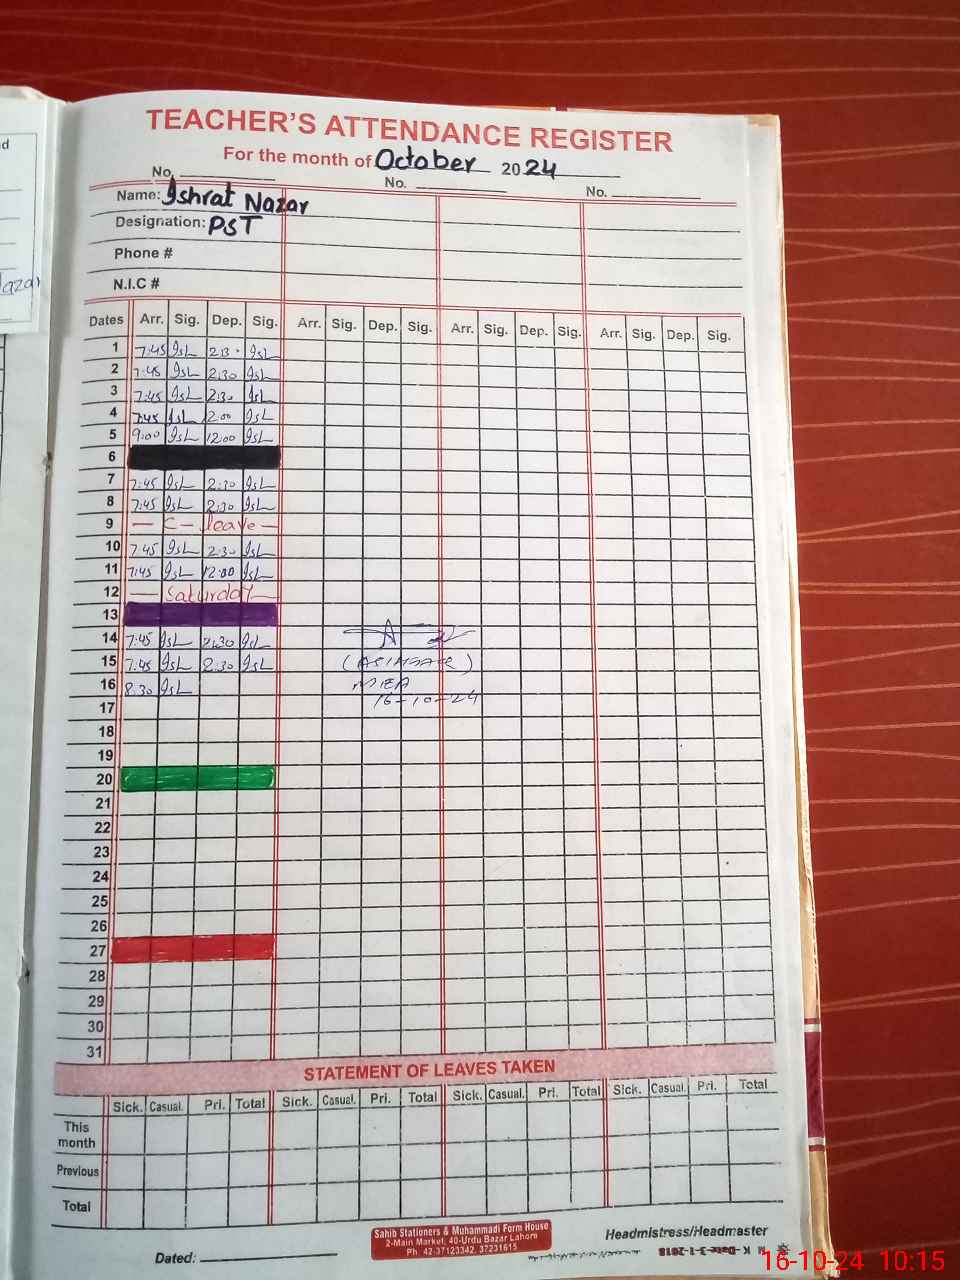 TEACHER'S ATTENDANCE REGISTER
For the month of October 2024
No. No. No.
Name: Ishrat Nazar
Designation: PST
Phone #
N.I.C #
azar
Dates Arr. Sig. Dep. Sig. Arr. Sig. Dep. Sig. Arr. Sig. Dep. Sig. Arr. Sig. Dep. Sig.
1 7:45 IsL 2:30 IsL
2 7:45 IsL 2:30 IsL
3 7:45 IsL 2:30 IsL
4 7:45 IsL 2:00 IsL
5 9:00 IsL 12:00 IsL
6
7 7:45 IsL 2:30 IsL
8 7:45 IsL 2:30 IsL
9 — C - leave —
10 7:45 IsL 2:30 IsL
11 7:45 IsL 12:00 IsL
12 — Saturday —
13
14 7:45 IsL 2:30 IsL
15 7:45 IsL 2:30 IsL
16 8:30 IsL
MEA
16-10-24
17
18
19
20
21
22
23
24
25
26
27
28
29
30
31
STATEMENT OF LEAVES TAKEN
Sick. Casual. Pri. Total Sick. Casual. Pri. Total Sick. Casual. Pri. Total Sick. Casual. Pri. Total
This month
Previous
Total
Sahib Stationers & Muhammadi Form House
2-Main Market, 40-Urdu Bazar Lahore
Ph 42-37123342, 37231615
Dated: Headmistress/Headmaster
16-10-24 10:15